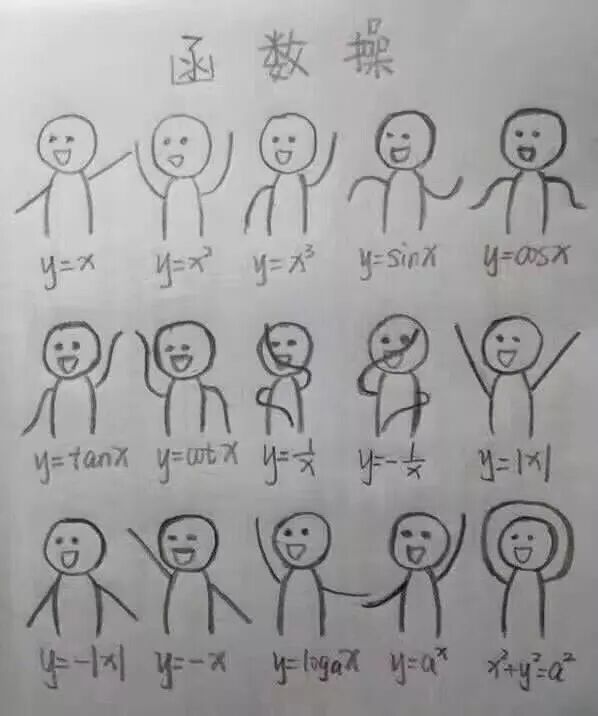 函数操
y=x y=x² y=x³ y=sinx y=cosx
y=tanx y=cotx y=1/x y=-1/x y=|x|
y=-|x| y=-x y=logax y=aˣ x²+y²=a²